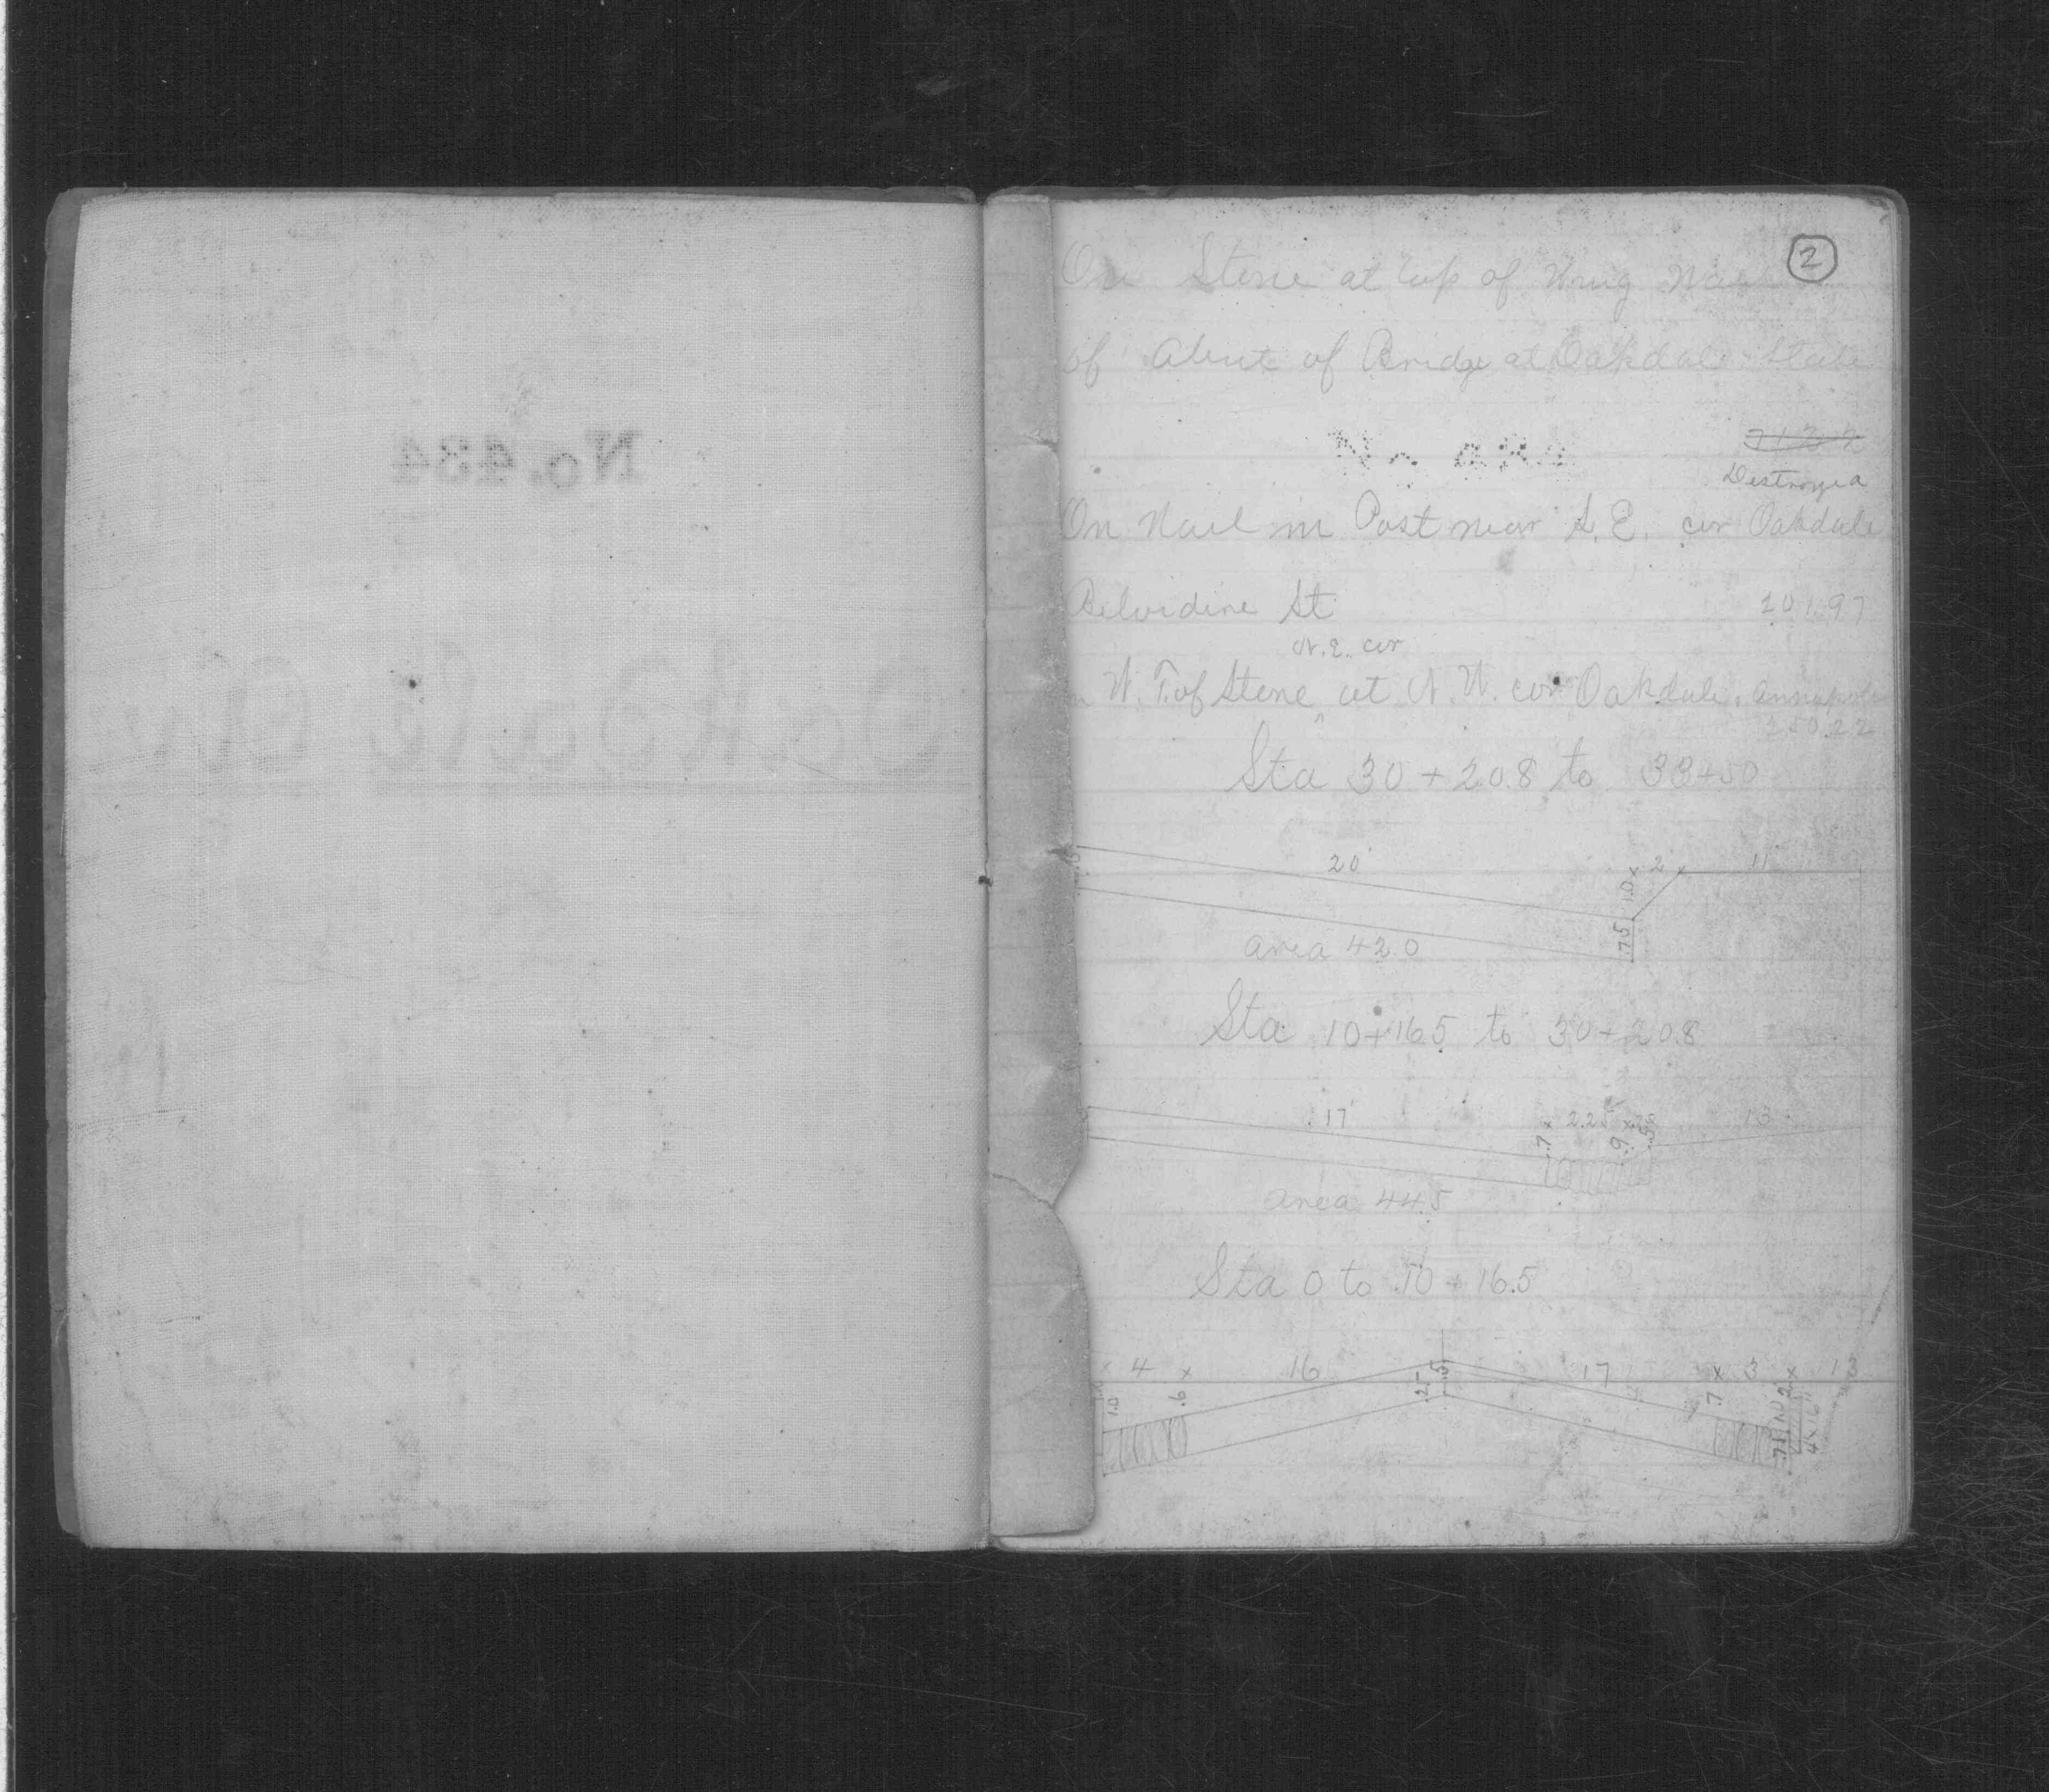 No. 434
Oakdale
2
On Stone at top of Wing Wall
of Abut of Bridge at Oakdale State
No. 434
Destroyed
On Nail in Post near S.E. cor Oakdale
Belvidere St 201.97
N.E. cor
W. T. of Stone at N.W. cor Oakdale, Annapolis
250.22
Sta 30 + 20.8 to 33+50
20' x 2 x 11
1.0
.75
area 42.0
Sta 10+16.5 to 30+20.8
17' x 2.25 x 13
.7 .9
area 44.5
Sta 0 to 10 + 16.5
x 4 x 16 17 x 3 x 13
1.0 .6 .5 .7